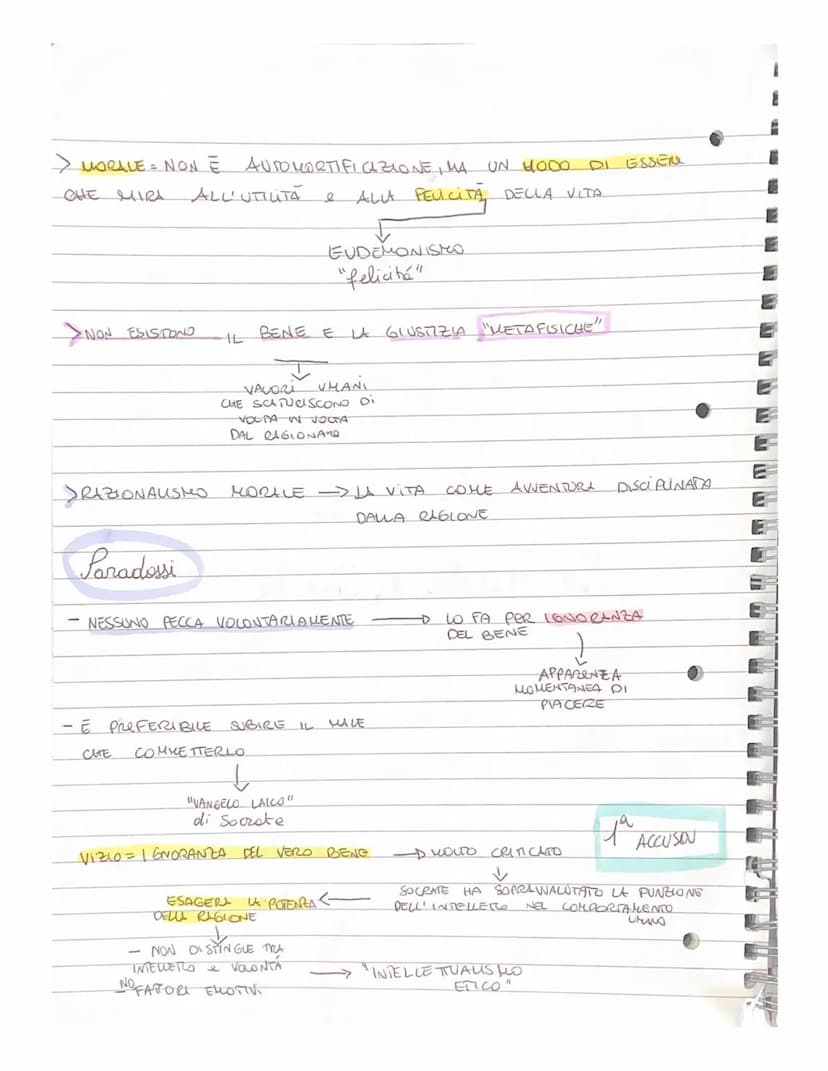 > MORALE = NON È AUTOMORTIFICAZIONE, MA UN MODO DI ESSERE
CHE MIRA ALL'UTILITÀ e ALLA FELICITÀ DELLA VITA
EUDEMONISMO
"felicità"
> NON ESISTONO IL BENE E LA GIUSTIZIA "METAFISICHE"
VALORI UMANI
CHE SCATURISCONO DI
VOLTA IN VOLTA
DAL RAGIONARE
> RAZIONALISMO MORALE → LA VITA COME AVVENTURA DISCIPLINATA
DALLA RAGIONE
Paradossi
- NESSUNO PECCA VOLONTARIAMENTE → LO FA PER IGNORANZA
DEL BENE
APPARENZA
MOMENTANEA DI
PIACERE
- È PREFERIBILE SUBIRE IL MALE
CHE COMMETTERLO
"VANGELO LAICO"
di Socrate
1ª ACCUSA
VIZIO = IGNORANZA DEL VERO BENE → MOLTO CRITICATO
SOCRATE HA SOPRAVVALUTATO LA FUNZIONE
DELL'INTELLETTO NEL COMPORTAMENTO
UMANO
ESAGERA LA POTENZA ←
DELLA RAGIONE
- NON DISTINGUE TRA
INTELLETTO e VOLONTÀ → "INTELLETTUALISMO
ETICO"
- NO FATTORI EMOTIVI